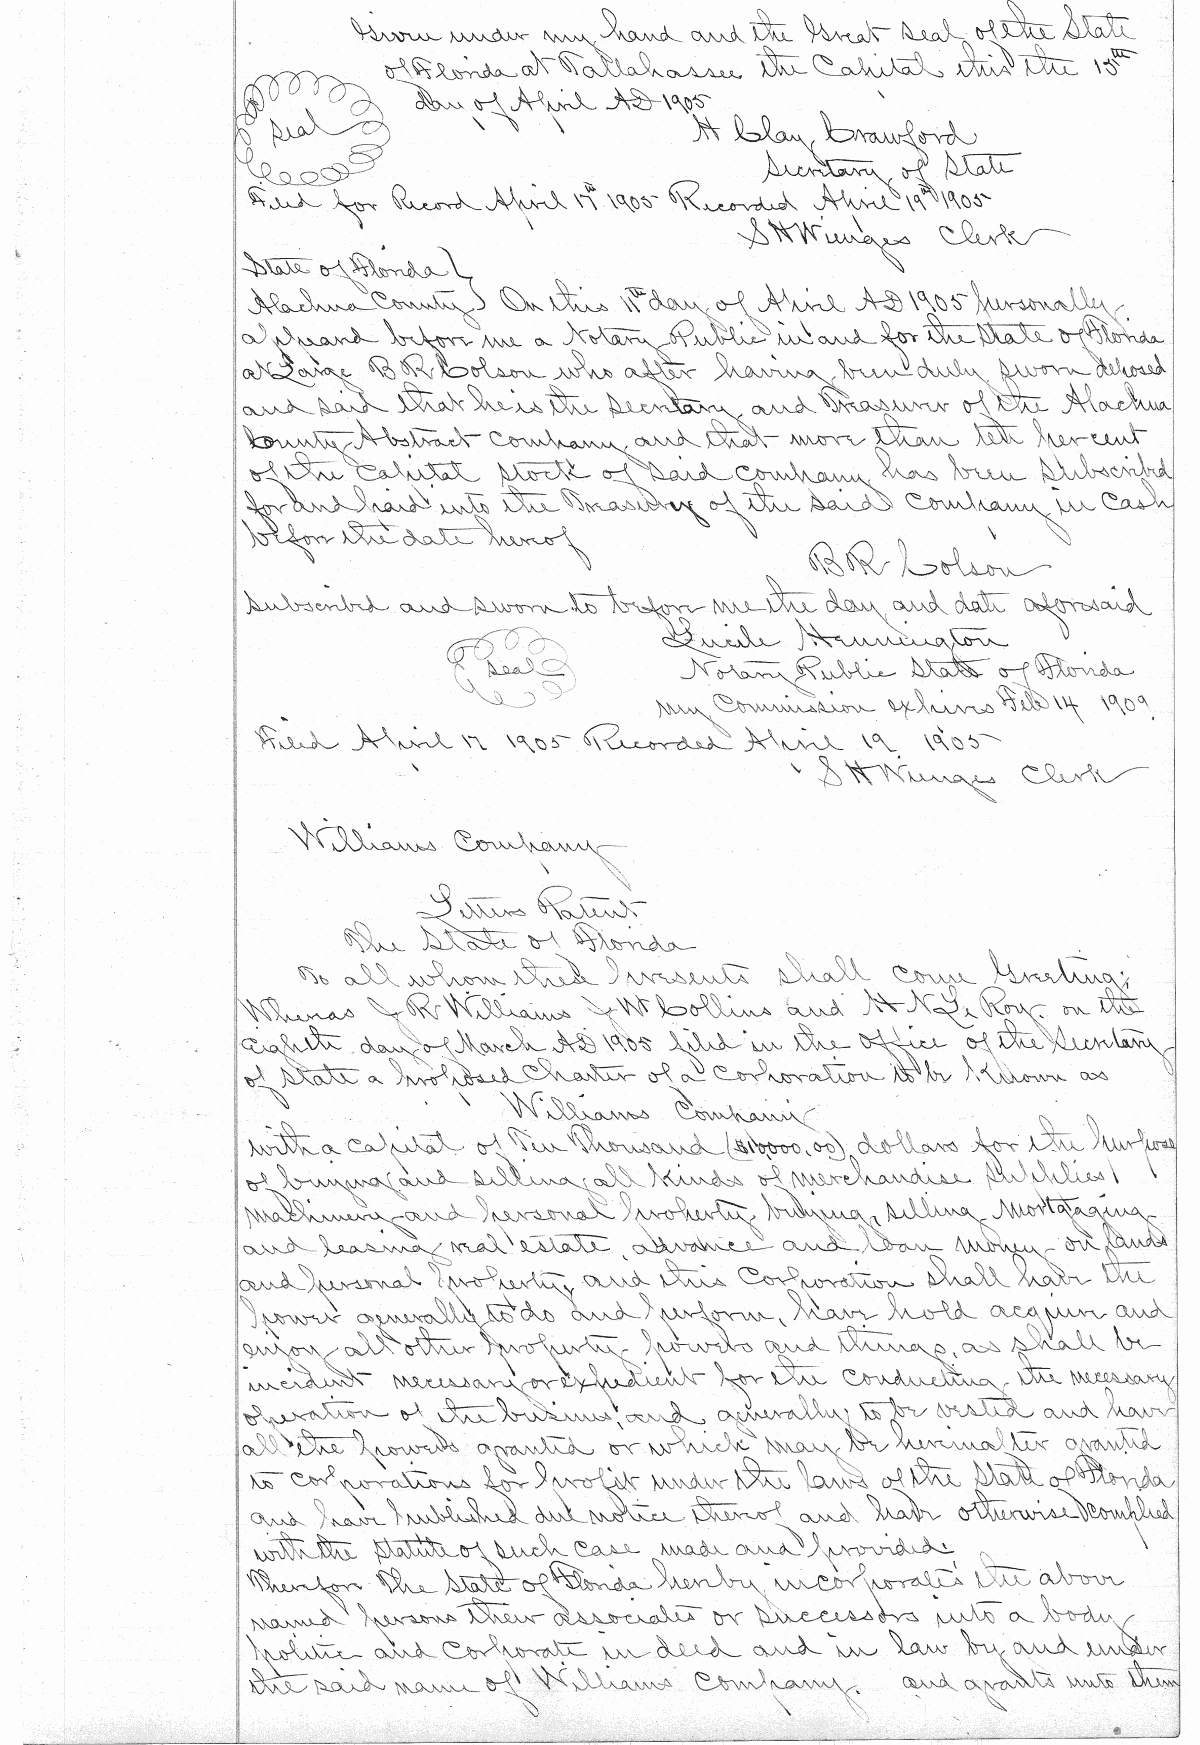 Given under my hand and the Great seal of the State
of Florida at Tallahassee the Capital this the 15th
day of April AD 1905
seal
H Clay Crawford
Secretary of State
Filed for Record April 17th 1905 Recorded April 19th 1905
S H Wienges Clerk
State of Florida }
Alachua County } On this 11th day of April AD 1905 personally
appeared before me a Notary Public in and for the State of Florida
at Large B R Colson who after having been duly sworn deposed
and said that he is the Secretary and Treasurer of the Alachua
County Abstract company and that more than ten per cent
of the capital stock of said company has been subscribed
for and paid into the Treasury of the said company in cash
before the date hereof
B R Colson
subscribed and sworn to before me the day and date aforesaid
Lucile Hennington
seal
Notary Public State of Florida
my commission expires Feb 14 1909
Filed April 17 1905 Recorded April 19 1905
S H Wienges Clerk
Williams Company
Letters Patent
The State of Florida
To all whom these presents shall come Greeting;
Whereas J R Williams J W Collins and H N Le Roy on the
eighth day of March AD 1905 filed in the office of the Secretary
of State a proposed Charter of a corporation to be known as
Williams Company
with a capital of Ten Thousand ($10,000.00) dollars for the purpose
of buying and selling all kinds of merchandise supplies
machinery and personal property, buying, selling mortgaging
and leasing real estate, advance and loan money on lands
and personal property, and this corporation shall have the
power generally to do and perform, have hold acquire and
enjoy all other property powers and things, as shall be
incident necessary or expedient for the conducting the necessary
operation of the business, and generally to be vested and have
all the powers granted or which may be hereinafter granted
to corporations for profit under the laws of the State of Florida
and have published due notice thereof and have otherwise complied
with the statute of such case made and provided;
Therefore The State of Florida hereby incorporates the above
named persons their associates or successors into a body
politic and corporate in deed and in law by and under
the said name of Williams Company. and grants unto them